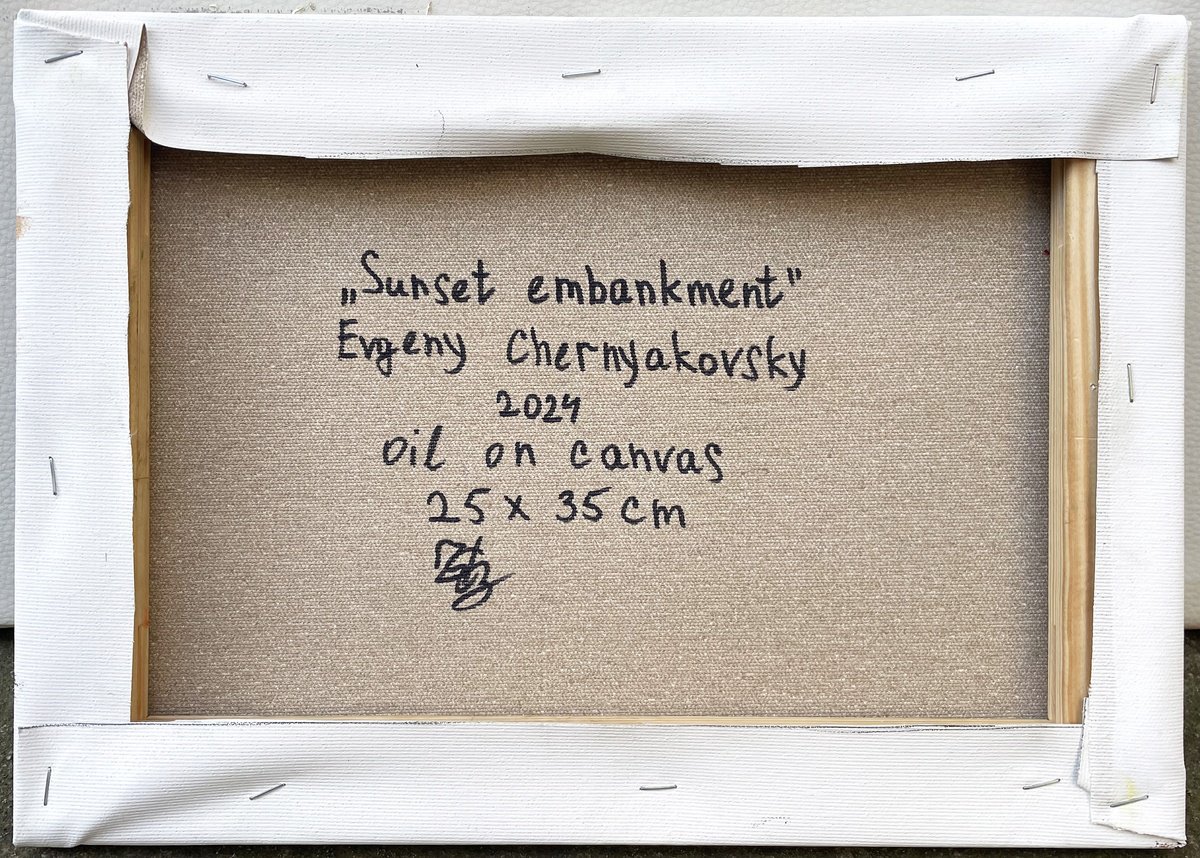 „Sunset embankment"
Evgeny Chernyakovsky
2024
oil on canvas
25 x 35 cm